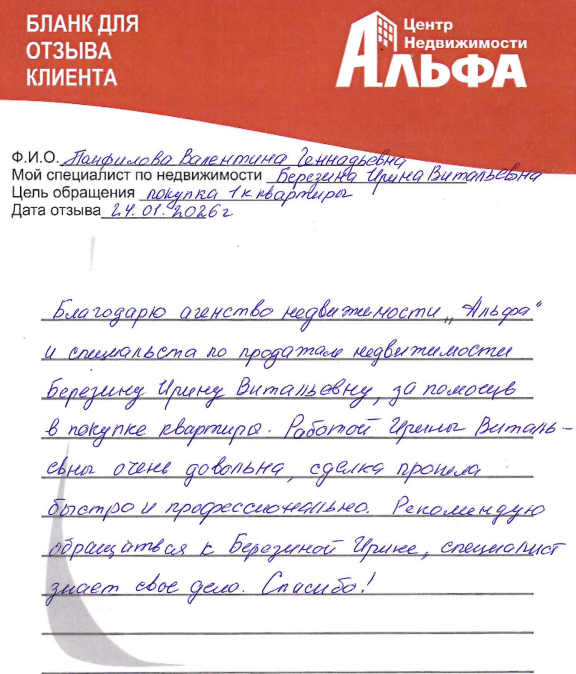 БЛАНК ДЛЯ
ОТЗЫВА
КЛИЕНТА
Центр
Недвижимости
АЛЬФА
Ф.И.О. Панфилова Валентина Геннадьевна
Мой специалист по недвижимости Березина Ирина Витальевна
Цель обращения покупка 1к.квартиры
Дата отзыва 24.01.2026г
Благодарю агенство недвижимости „Альфа“
и специальста по продажам недвижимости
Березину Ирину Витальевну, за помощь
в покупке квартиры. Работой Ирины Виталь-
евны очень довольна, сделка прошла
быстро и профессионально. Рекомендую
обращаться к Березиной Ирине, специалист
знает свое дело. Спасибо!